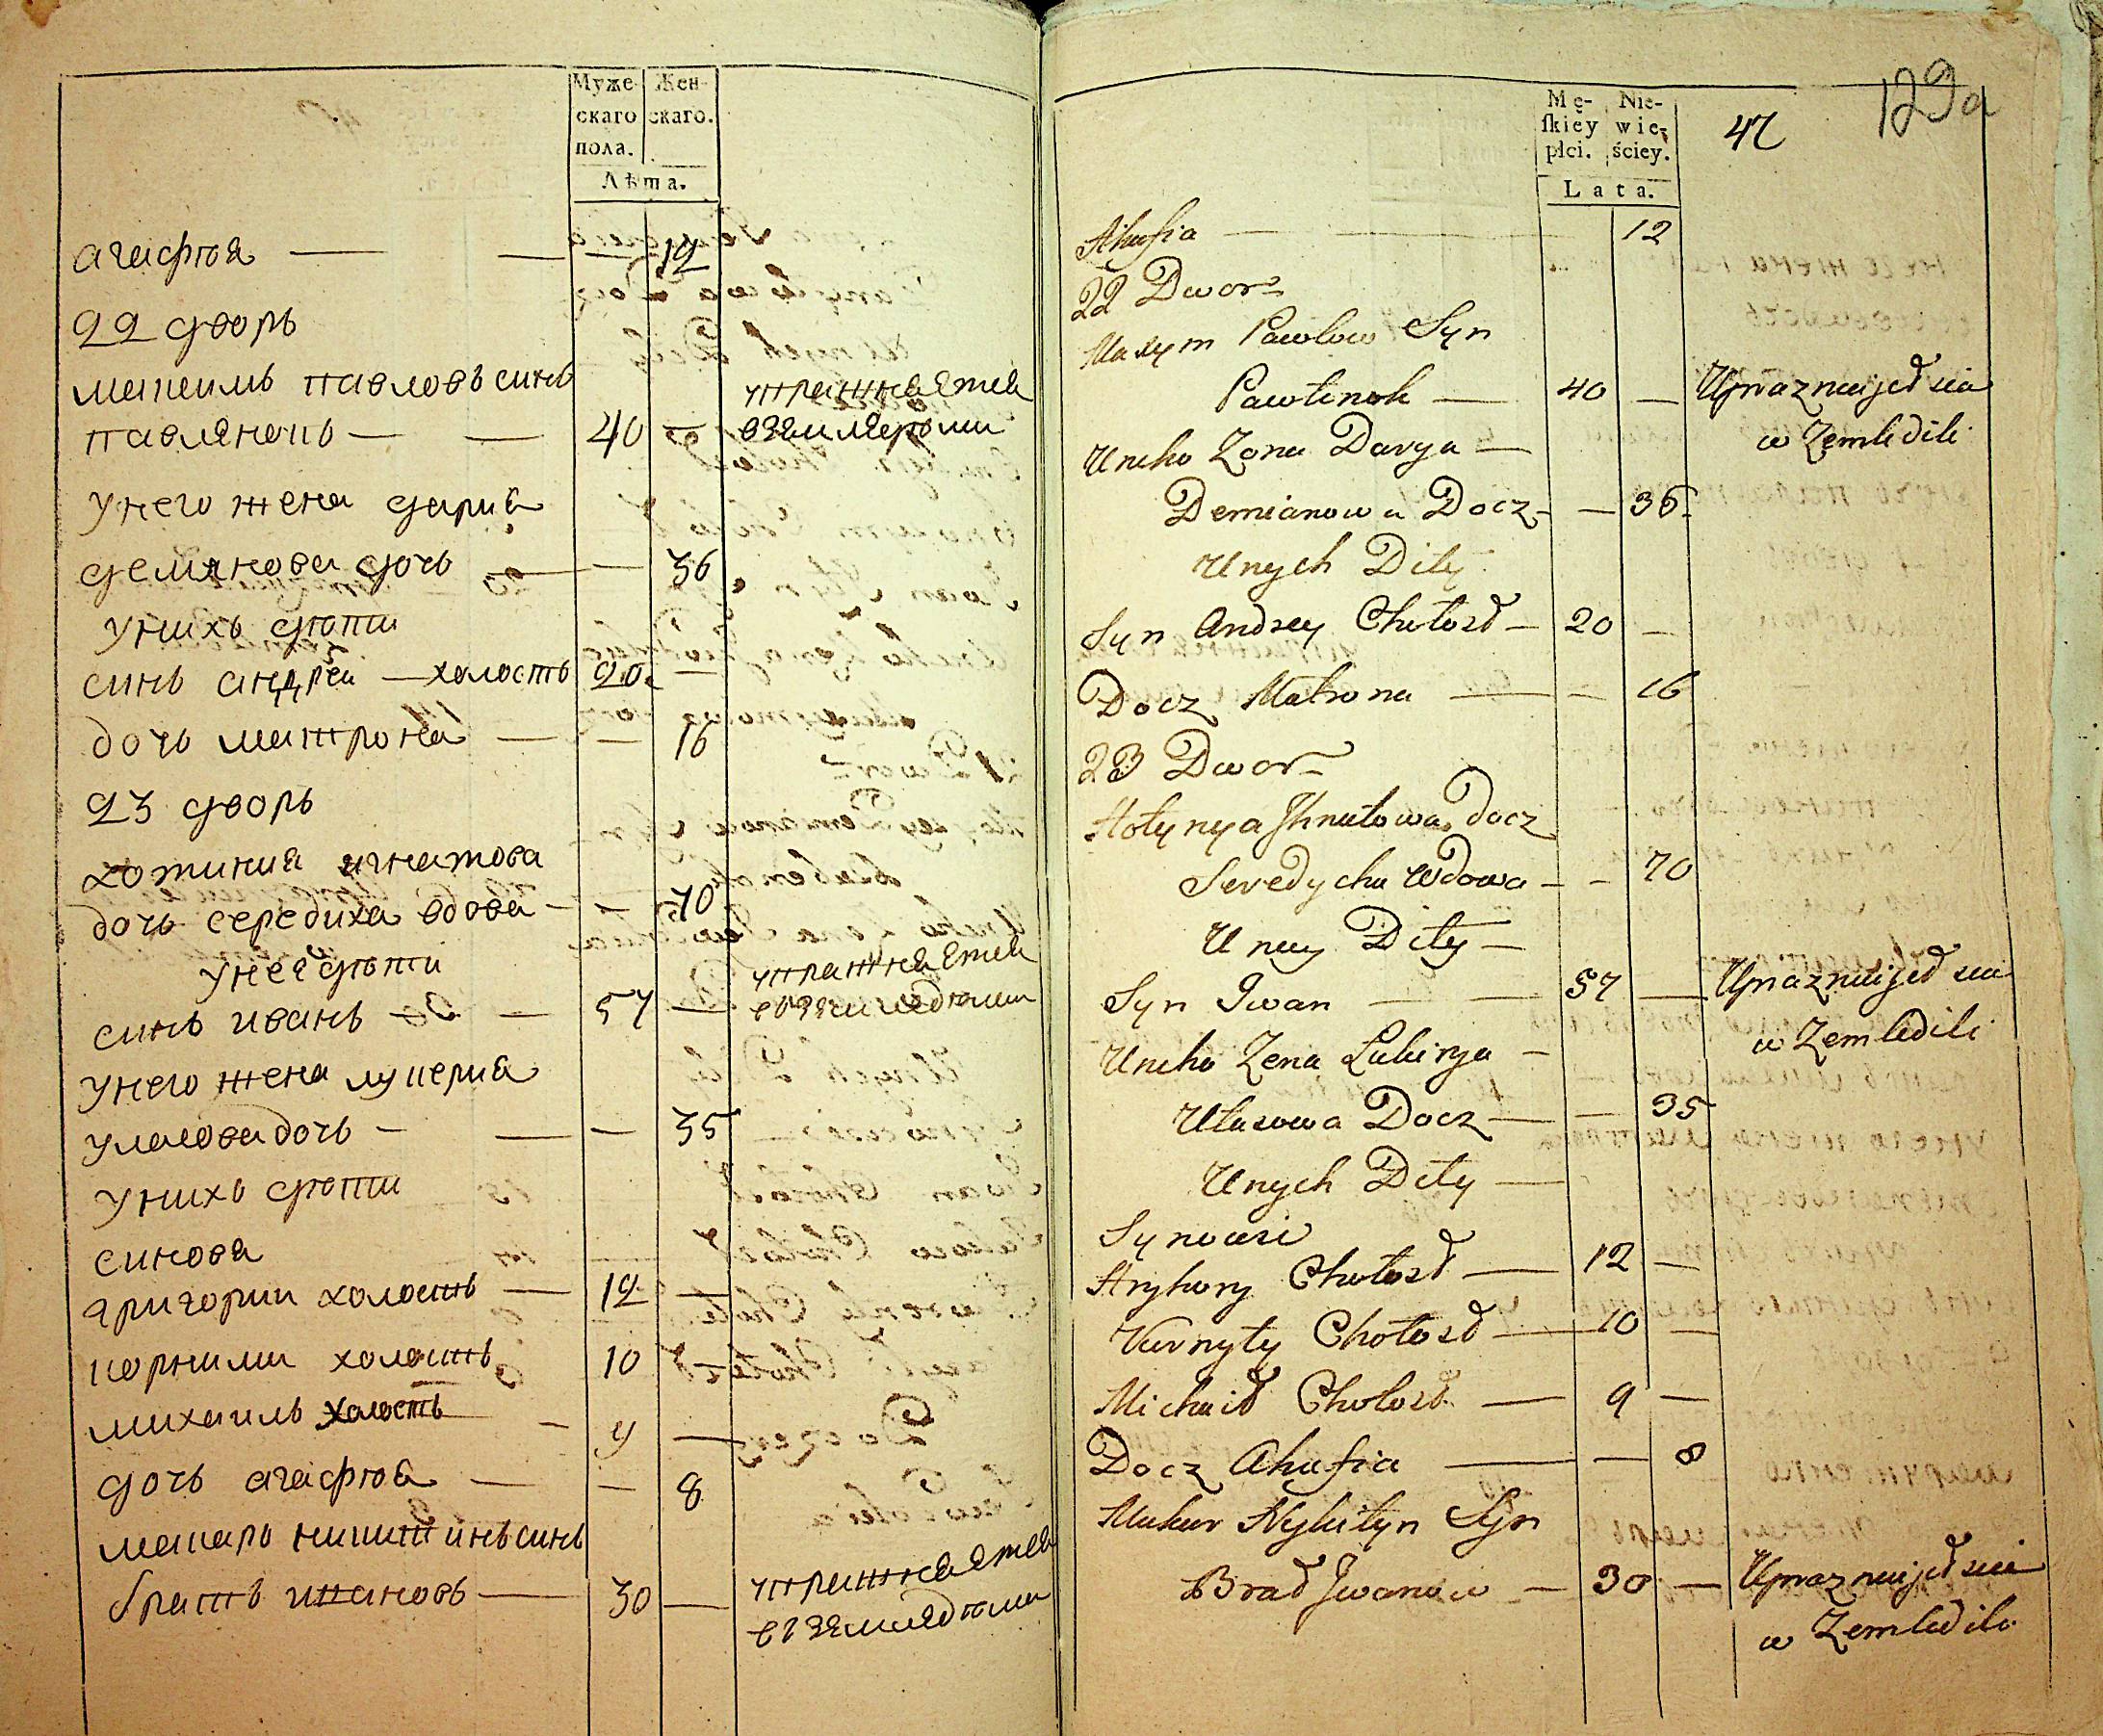 Муже-
скаго
пола.
Жен-
скаго.
Лѣта.
агафѣя — — — 12
22 дворъ
максимъ павловъ синъ
павлянокъ — — 40 — упражняется
в земледѣліи
унего жена дария
демянова дочь — — 36
унихъ дѣти
синъ андрей — холостъ 20 —
дочь матрона — — 16
23 дворъ
хотиния игнатова
дочь середиха вдова — — 70
унея дѣти
синъ иванъ — — 57 — упражняется
въ земледѣлии
унего жена лукерия
уласова дочь — — — 35
унихъ дѣти
синова
григории холостъ — 12 —
корнили холостъ 10
михаилъ холостъ — 9 —
дочь агафѣя — — 8
макаръ никитинъ синъ
братъ ивановъ — 30 — упражняется
въ земледѣлии
129а
47
Mę-
ſkiey
płci.
Nie-
wie-
ściey.
Lata.
Ahafia — — 12
22 Dwor
Maxym Pawlow Syn
Pawlenok — 40 — Uprazniajet sia
w Zemledili
Uneho Zona Darya —
Demianowa Docz — — 36
Unych Dity
Syn Andrey Chołost — 20 —
Docz Matrona — — 16
23 Dwor
Hotynya Ihnatowa docz
Seredycha Wdowa — — 70
Uney Dity —
Syn Iwan — — 57 — Uprazniajet sia
w Zemledili
Uneho Zena Lukirya —
Ułasowa Docz — — 35
Unych Dity —
Synowi
Hryhory Chołost — 12 —
Kornyły Chołost — 10 —
Michaił Chołost — 9 —
Docz Ahafia — — 8
Makar Nykityn Syn
Brat Iwanow — 30 — Uprazniajet sia
w Zemledili